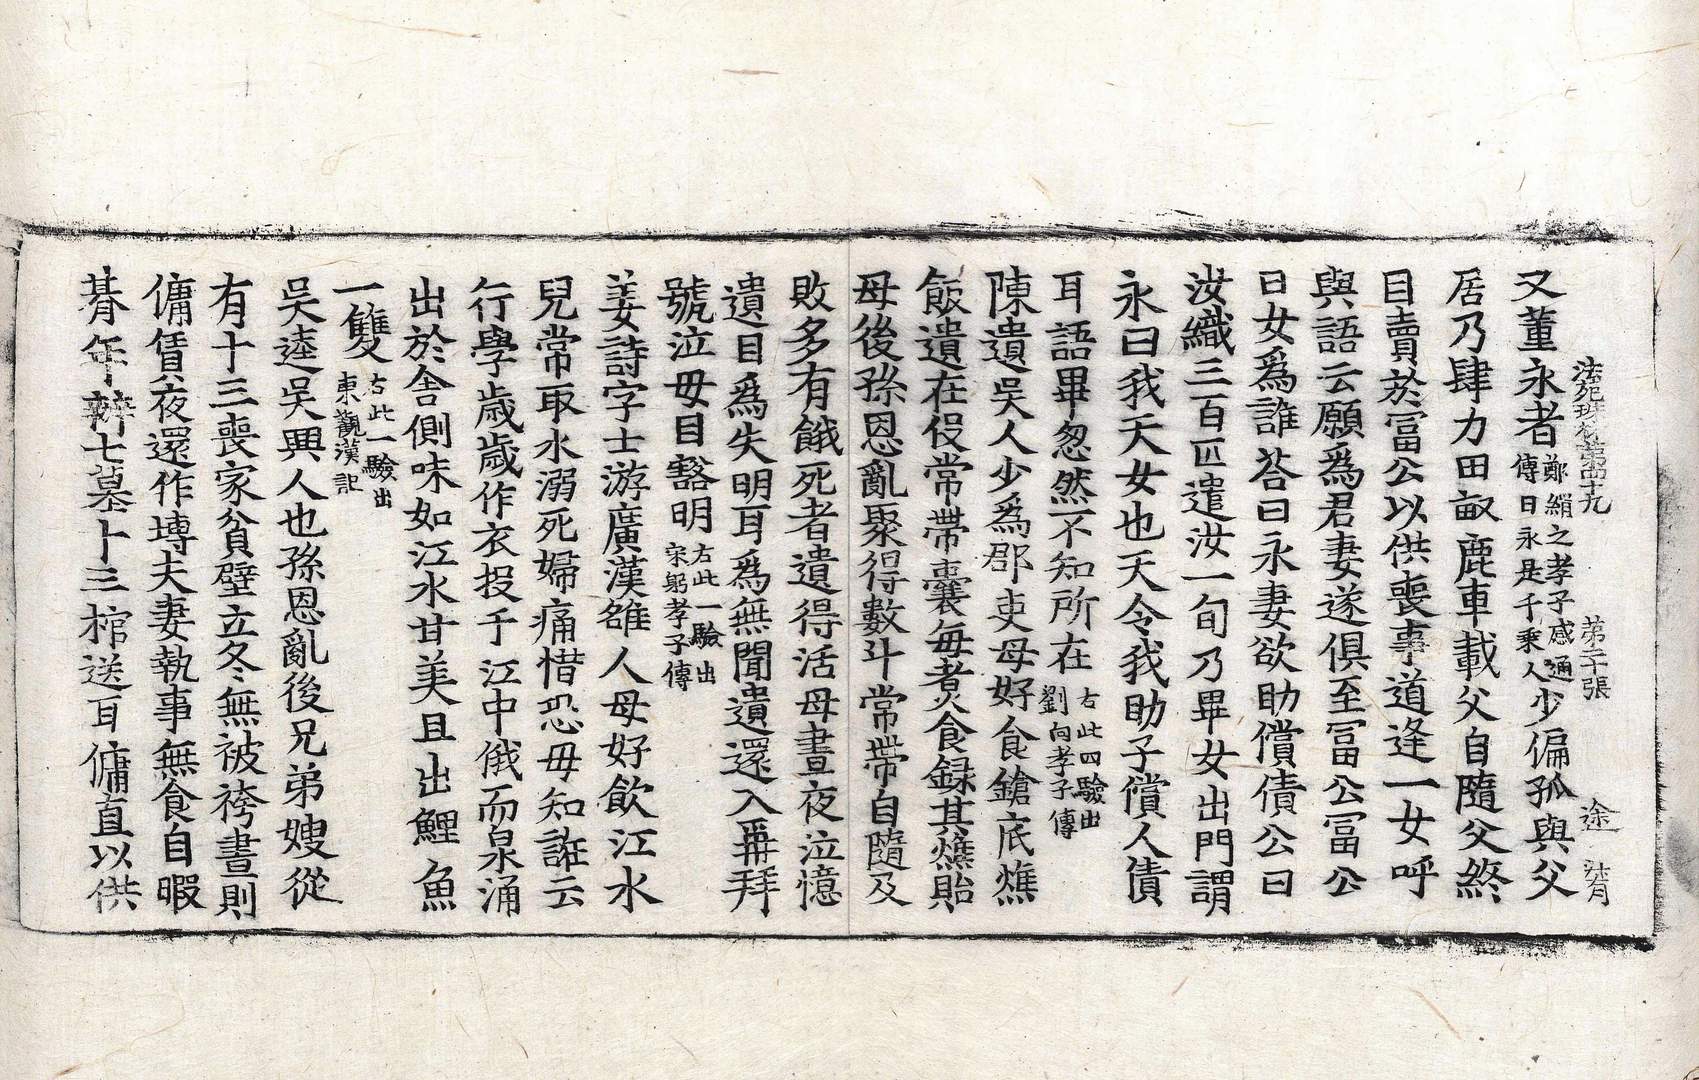 法苑珠林第四十九 第二十張 途
又董永者鄭緝之孝子感通傳曰永是千乘人少偏孤與父
居乃肆力田畝鹿車載父自隨父終
自賣於富公以供喪事道逢一女呼
與語云願爲君妻遂俱至富公富公
曰女爲誰荅曰永妻欲助償債公曰
汝織三百匹遣汝一旬乃畢女出門謂
永曰我天女也天令我助子償人債
耳語畢忽然不知所在右此四驗出劉向孝子傳
陳遺吳人少爲郡吏母好食鎗底燋
飯遺在役常帶囊每煑食録其燋貽
母後孫恩亂聚得數斗常帶自隨及
敗多有餓死者遺得活母晝夜泣憶
遺目爲失明耳爲無聞遺還入再拜
號泣母目豁明右此一驗出宋躬孝子傳
姜詩字士游廣漢雒人母好飲江水
兒常取水溺死婦痛惜恐母知詐云
行學歲歲作衣投于江中俄而泉涌
出於舍側味如江水甘美且出鯉魚
一雙右此一驗出東觀漢記
吳逵吳興人也孫恩亂後兄弟嫂從
有十三喪家貧壁立冬無被袴晝則
傭賃夜還作塼夫妻執事無食自暇
朞年辦七墓十三棺送耳傭直以供